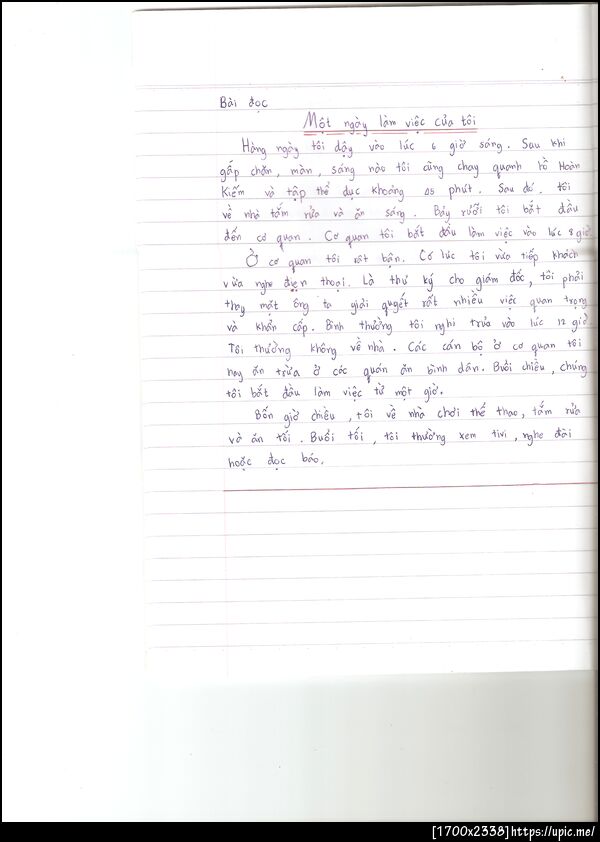 Bài đọc
Một ngày làm việc của tôi
Hàng ngày tôi dậy vào lúc 6 giờ sáng. Sau khi
gấp chăn, màn, sáng nào tôi cũng chạy quanh hồ Hoàn
Kiếm và tập thể dục khoảng 25 phút. Sau đó, tôi
về nhà tắm rửa và ăn sáng. Bảy rưỡi tôi bắt đầu
đến cơ quan. Cơ quan tôi bắt đầu làm việc vào lúc 8 giờ
Ở cơ quan tôi rất bận. Có lúc tôi vừa tiếp khách
vừa nghe điẹn thoại. Là thư ký cho giám đốc, tôi phải
thay mặt ông ta giải quyết rất nhiều việc quan trọng
và khẩn cấp. Bình thường tôi nghỉ trưa vào lúc 12 giờ.
Tôi thường không về nhà. Các cán bộ ở cơ quan tôi
hay ăn trưa ở các quán ăn bình dân. Buổi chiều, chúng
tôi bắt đầu làm việc từ một giờ.
Bốn giờ chiều, tôi về nhà chơi thể thao, tắm rửa
và ăn tối. Buổi tối, tôi thường xem tivi, nghe đài
hoặc đọc báo.
[1700x2338]https://upic.me/